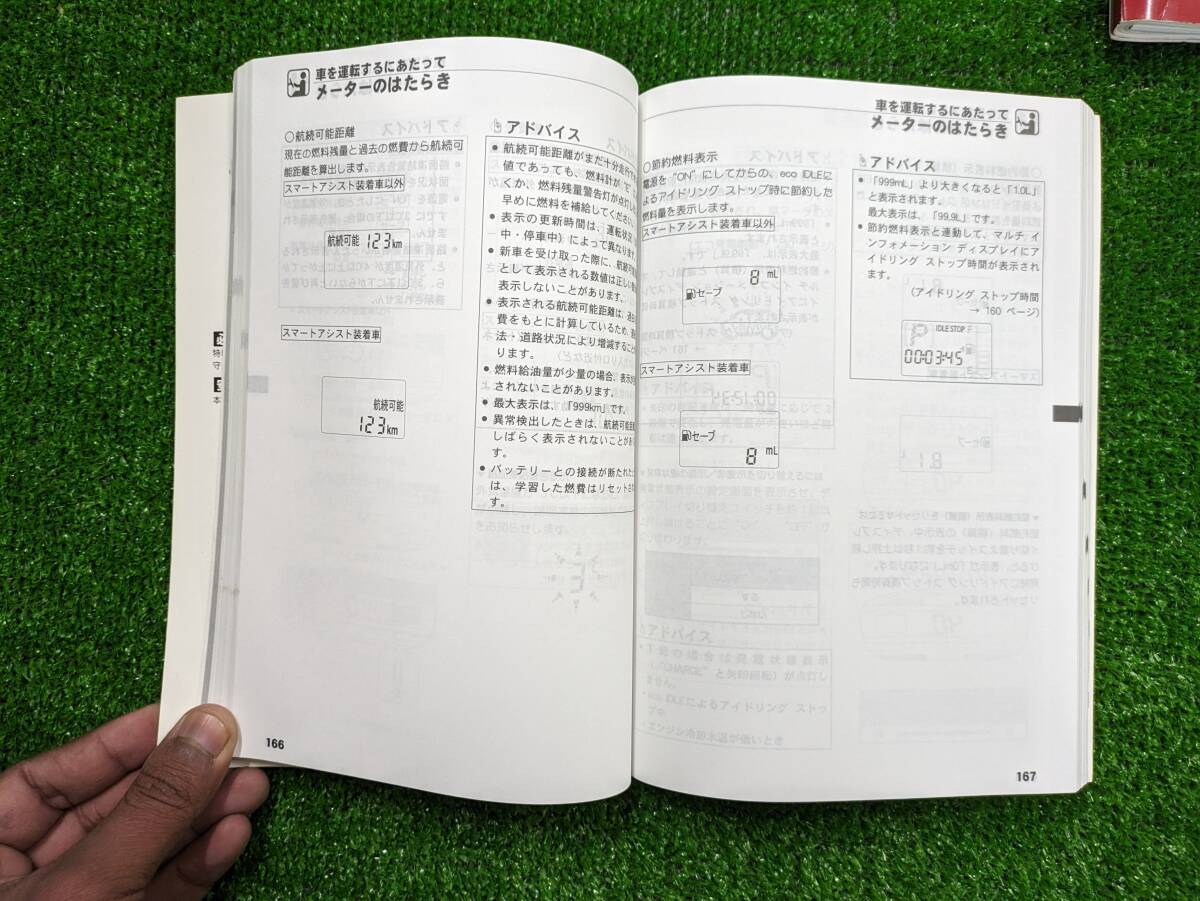 車を運転するにあたって
メーターのはたらき
○航続可能距離
現在の燃料残量と過去の燃費から航続可
能距離を算出します。
スマートアシスト装着車以外
航続可能 123km
スマートアシスト装着車
航続可能
123km
アドバイス
● 航続可能距離がまだ十分走行で
値であっても、燃料計が“E”
くか、燃料残量警告灯が点灯し
早めに燃料を補給してください。
● 表示の更新時間は、運転状況
中・停車中）によって異なります。
● 新車を受け取った際に、航続可能
として表示される数値は正しい
表示しないことがあります。
● 表示される航続可能距離は、過去
費をもとに計算しているため、
法・道路状況により増減すること
ります。
● 燃料給油量が少量の場合、表示が
されないことがあります。
● 最大表示は、「999km」です。
● 異常検出したときは、航続可能距
しばらく表示されないことがあ
す。
● バッテリーとの接続が断たれた
は、学習した燃費はリセットさ
す。
166
車を運転するにあたって
メーターのはたらき
○節約燃料表示
電源を“ON”にしてからの、eco IDLEに
よるアイドリング ストップ時に節約した
燃料量を表示します。
スマートアシスト装着車以外
8 mL
セーブ
スマートアシスト装着車
セーブ
8 mL
アドバイス
● 「999mL」より大きくなると「1.0L」
と表示されます。
最大表示は、「99.9L」です。
● 節約燃料表示と連動して、マルチ イ
ンフォメーション ディスプレイにア
イドリング ストップ時間が表示され
ます。
（アイドリング ストップ時間
→ 160 ページ）
P IDLE STOP F
00:03:45 E
167